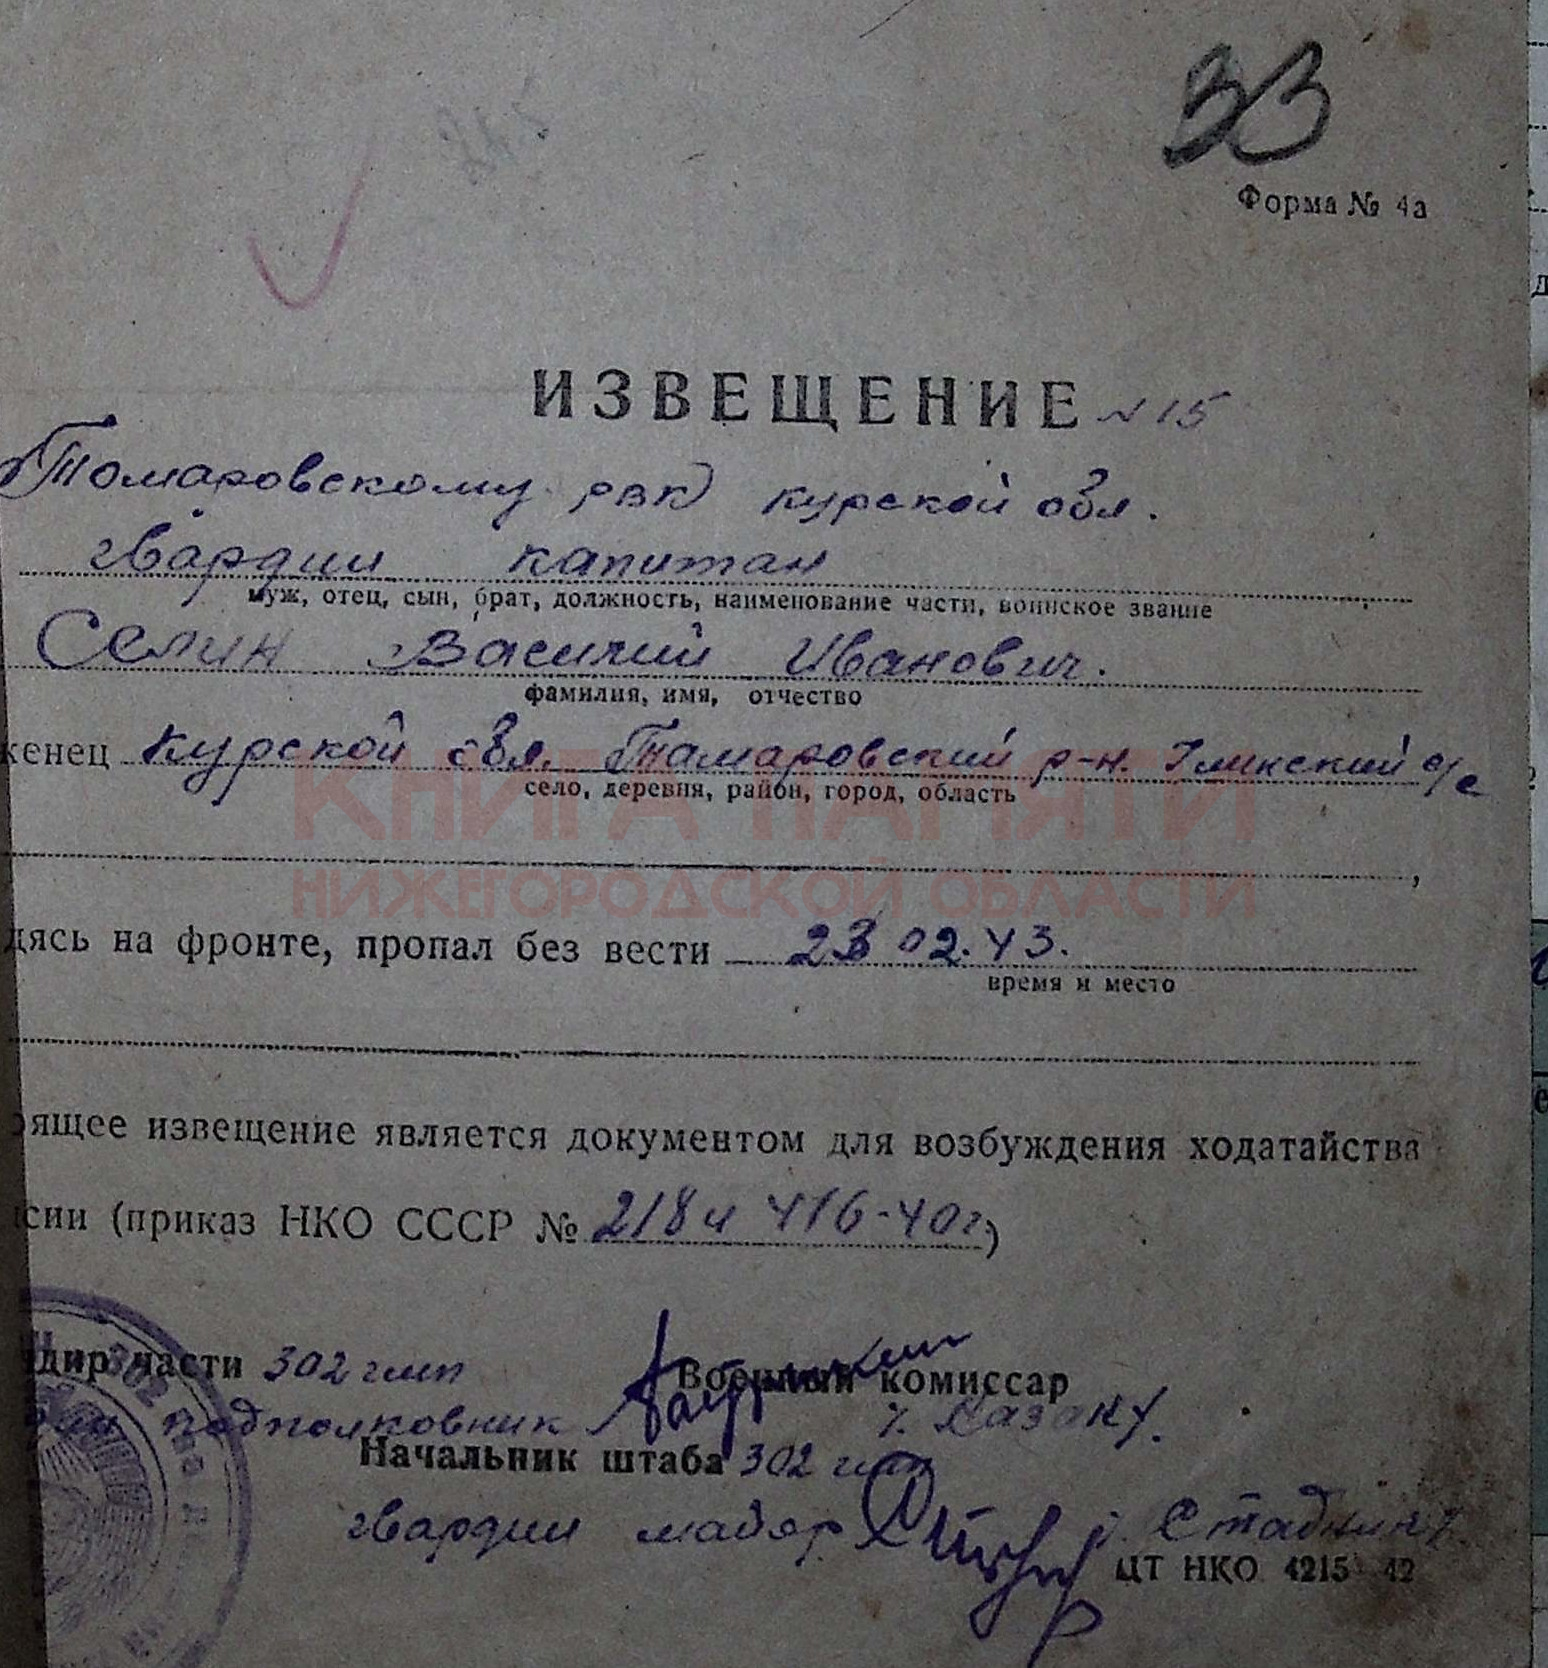 33
Форма № 4а
ИЗВЕЩЕНИЕ N 15
Томаровскому рвк курской обл.
гвардии капитан
муж, отец, сын, брат, должность, наименование части, воинское звание
Селин Василий Иванович.
фамилия, имя, отчество
женец Курской обл. Тамаровский р-н. с/с
село, деревня, район, город, область
КНИГА ПАМЯТИ
НИЖЕГОРОДСКОЙ ОБЛАСТИ
дясь на фронте, пропал без вести 23 02.43.
время и место
оящее извещение является документом для возбуждения ходатайства
сии (приказ НКО СССР № 218 и 416-40г)
дир части 302 гмп Военный комиссар
подполковник
Начальник штаба 302 гмп
гвардии майор
ЦТ НКО 4215 42